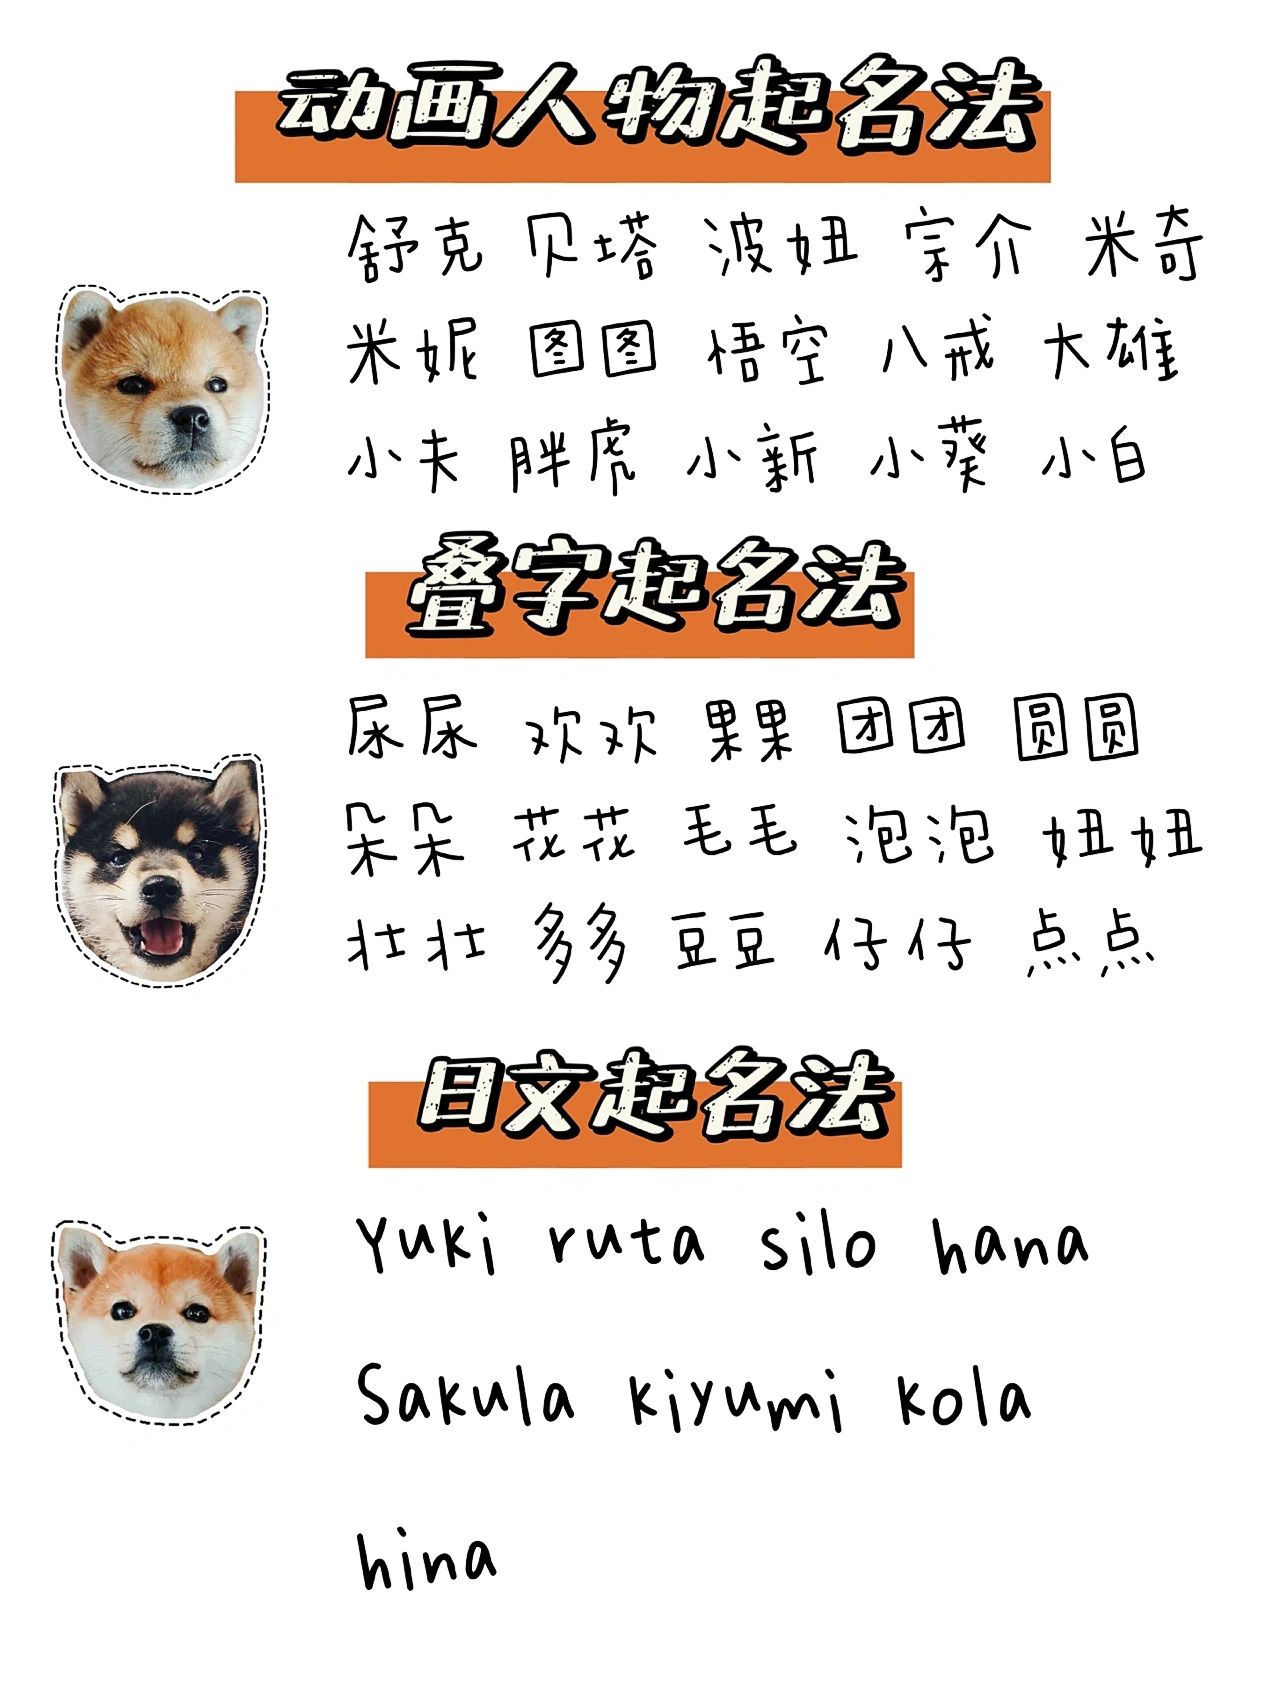 动画人物起名法
舒克 贝塔 波妞 宗介 米奇
米妮 图图 悟空 八戒 大雄
小夫 胖虎 小新 小葵 小白
叠字起名法
尿尿 欢欢 果果 团团 圆圆
朵朵 花花 毛毛 泡泡 妞妞
壮壮 多多 豆豆 仔仔 点点
日文起名法
Yuki ruta silo hana
Sakula kiyumi kola
hina